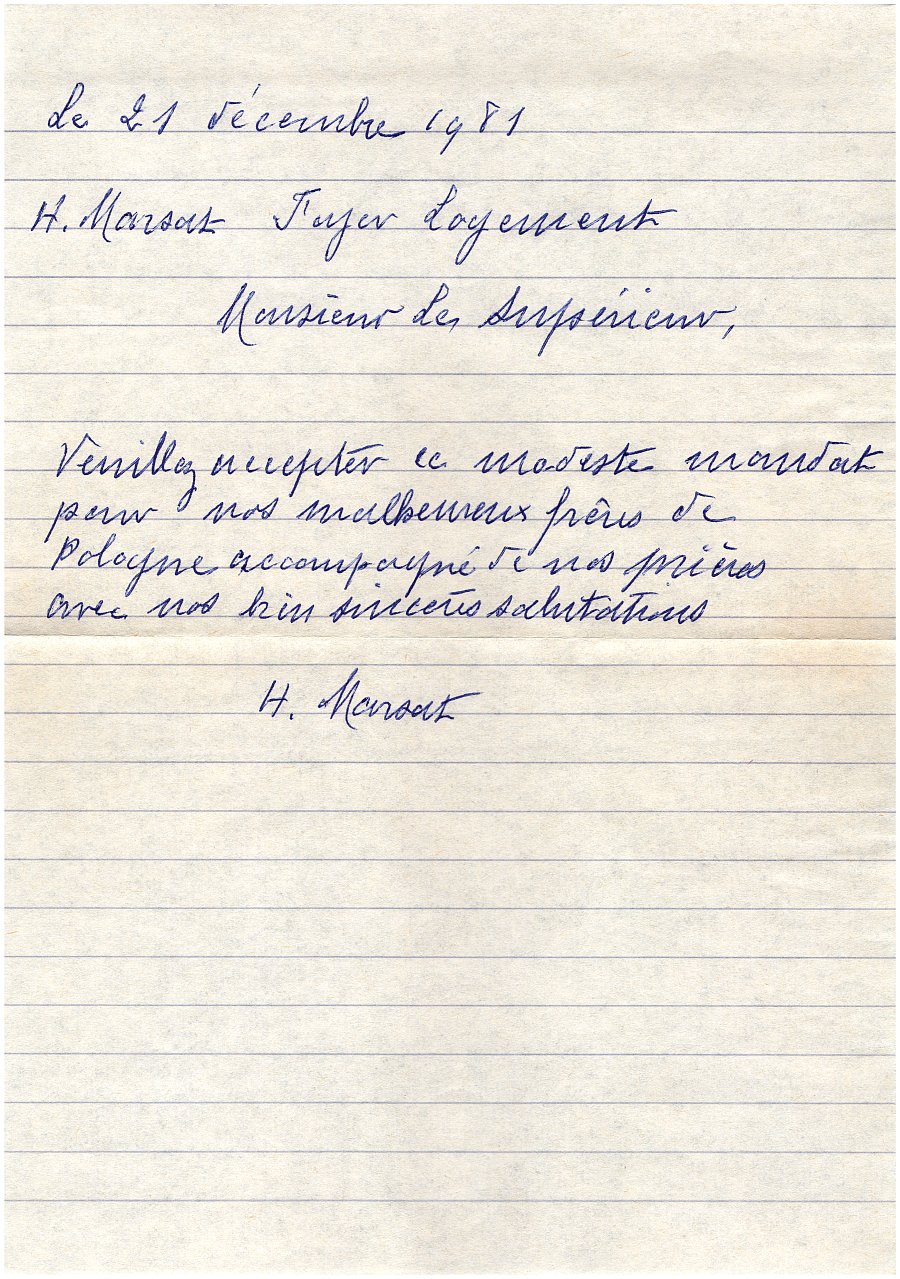 Le 21 décembre 1981
H. Marsat Foyer Logement
Monsieur Le Supérieur,
Veuillez accepter ce modeste mandat
pour nos malheureux frères de
Pologne accompagné de nos prières
avec nos bien sincères salutations
H. Marsat